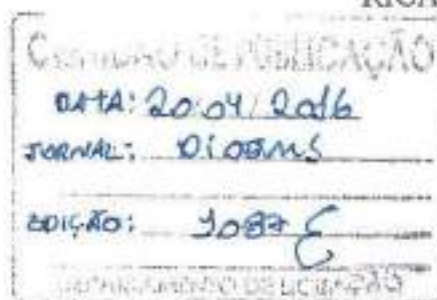 RICA
CERTIDÃO DE PUBLICAÇÃO
DATA: 20/04/2016
JORNAL: DIOEMS
EDIÇÃO: 1087
DEPARTAMENTO DE LICITAÇÃO